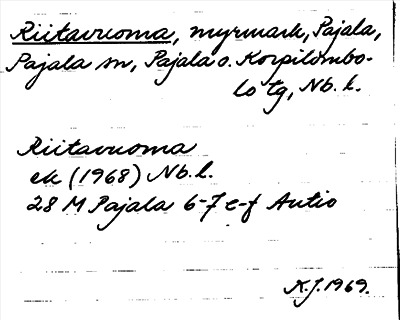 Riitavuoma, myrmark, Pajala,
Pajala sn, Pajala o. Korpilombo-
lo tg, Nb. l.
Riitavuoma
ek (1968) Nb. l.
28 M Pajala 6-7 e-f Autio
N.J. 1969.